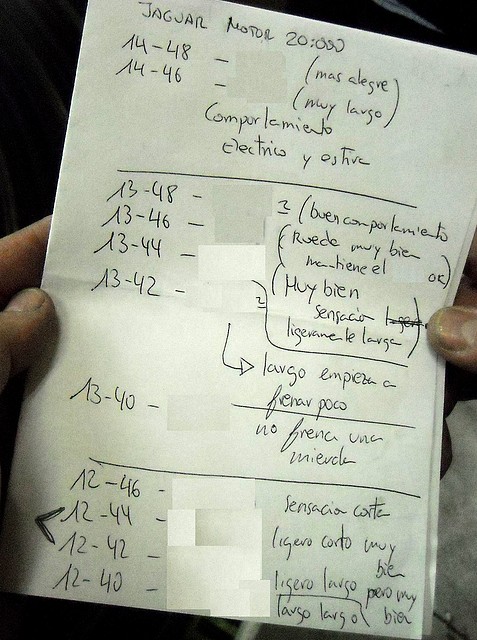 JAGUAR MOTOR 20:000
14-48 - (mas alegre)
14-46 - (muy largo)
Comportamiento
Electrico y estira
13-48 - (buen comportamiento
13-46 - (Ruede muy bien
mantiene el OK)
13-44 - (Muy bien
sensacion
13-42 - ligeramente larga)
largo empieza a
frenar poco
13-40 -
no frena una
mierda
12-46 - sensacion corta
12-44 - ligero corto muy
bien
12-42 - ligero largo pero muy
bien
12-40 - largo largo